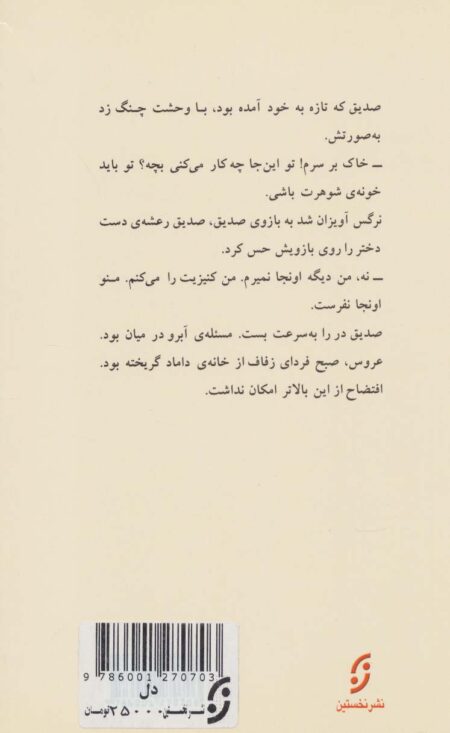 صدیق که تازه به خود آمده بود، با وحشت چنگ زد
به‌صورتش.
ــ خاک بر سرم! تو این‌جا چه کار می‌کنی بچه؟ تو باید
خونه‌ی شوهرت باشی.
نرگس آویزان شد به بازوی صدیق، صدیق رعشه‌ی دست
دختر را روی بازویش حس کرد.
ــ نه، من دیگه اونجا نمیرم. من کنیزیت را می‌کنم. منو
اونجا نفرست.
صدیق در را به‌سرعت بست. مسئله‌ی آبرو در میان بود.
عروس، صبح فردای زفاف از خانه‌ی داماد گریخته بود.
افتضاح از این بالاتر امکان نداشت.
9 786001 270703
دل
۲۵۰۰۰ تومان
نشر نخستین